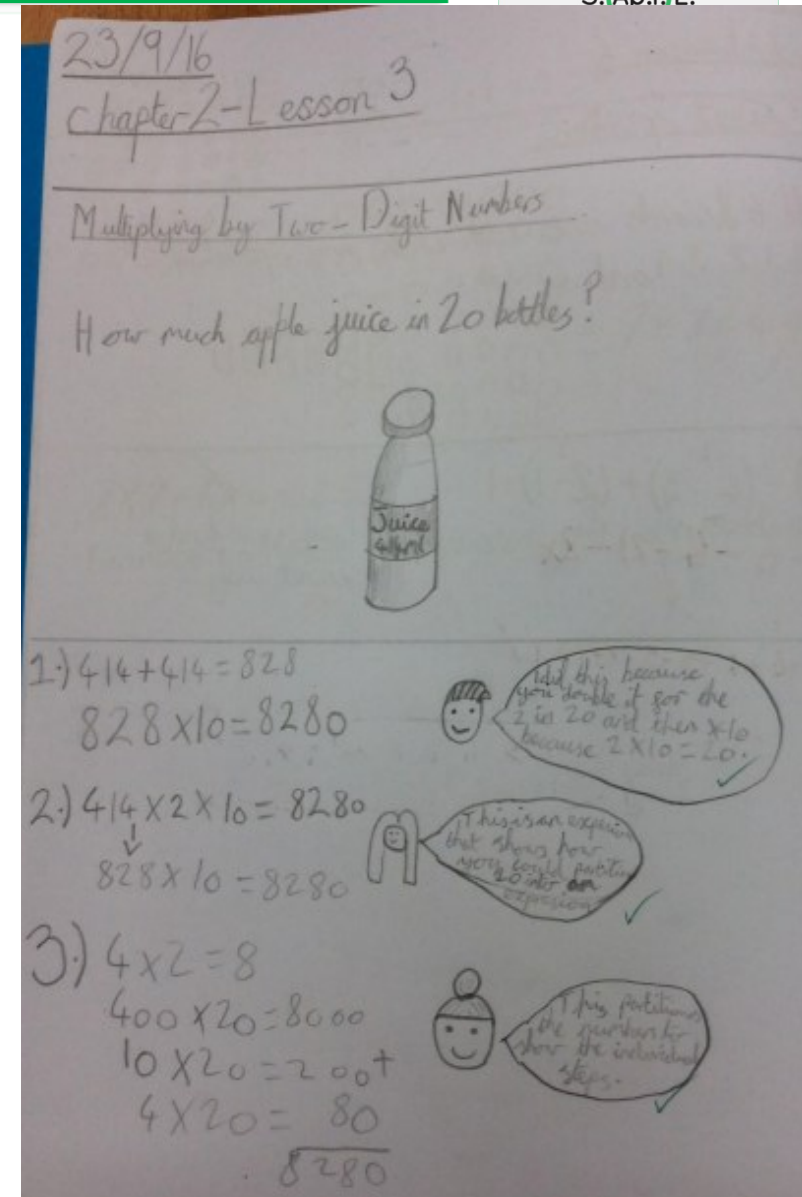 23/9/16
Chapter 2 - Lesson 3
Multiplying by Two - Digit Numbers
How much apple juice in 20 bottles?
Juice
414ml
1.) 414+414=828
828×10=8280
I did this because
you double it for the
2 in 20 and then ×10
because 2×10=20.
2.) 414×2×10=8280
828×10=8280
This is an
that shows how
you could
20 into an
expression
3.) 4×2=8
400×20=8000
10×20=200+
4×20=80
8280
This partitions
the numbers to
show the individual
steps.